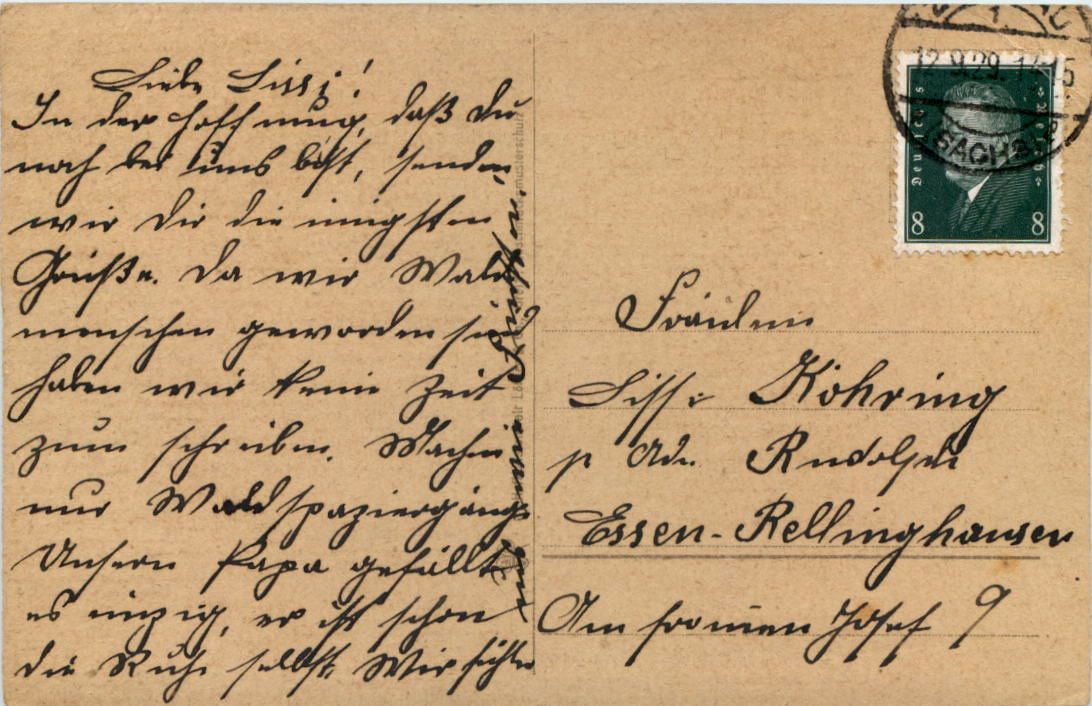 Liebe Lissi!
In der Hoffnung, daß Du
noch bei uns bist, senden
wir Dir die innigsten
Grüße. Da wir Wald
menschen geworden sind
haben wir keine Zeit
zum schreiben. Machen
nur Waldspaziergänge
Unserm Papa gefällt
es einzig, er ist schon
die Ruhe selbst. Wir
wie
12.9.29.
SACHS
Deutsches
8 8
Fräulein
Lissi Köhring
p Adr. Rudolph
Essen-Rellinghausen
Am frommen Josef 9